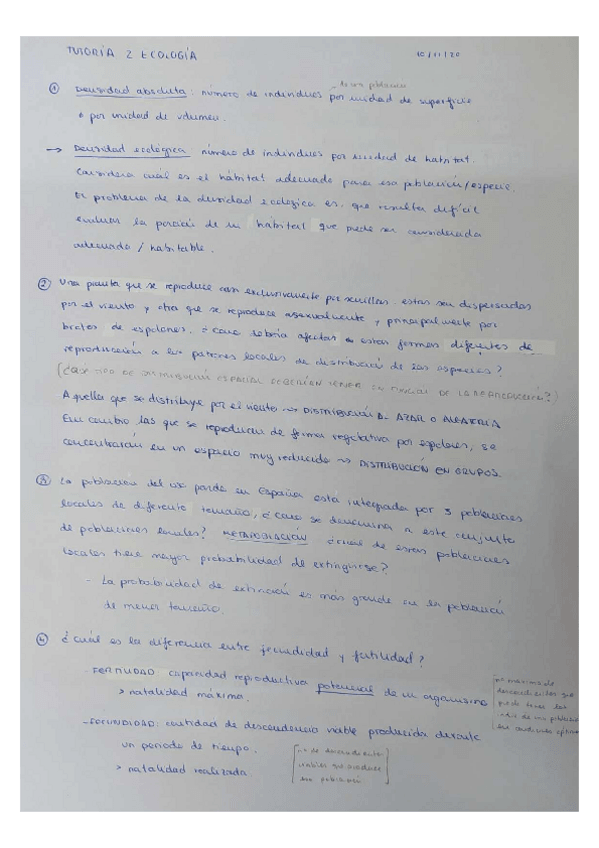 TUTORÍA 2 ECOLOGÍA 10/11/20
① Densidad absoluta: número de individuos de una población por unidad de superficie
o por unidad de volumen.
→ Densidad ecológica número de individuos por unidad de hábitat.
Considera cuál es el hábitat adecuado para esa población/especie.
El problema de la densidad ecológica es, que resulta difícil
evaluar la porción de un hábitat que puede ser considerada
adecuado / habitable.
② Una planta que se reproduce casi exclusivamente por semillas, estas son dispersadas
por el viento y otra que se reproduce asexualmente y principalmente por
brotes de espolones. ¿Cómo afectar estas formas diferentes de
reproducción a los patrones locales de distribución de las especies?
(¿QUÉ TIPO DE DISTRIBUCIÓN ESPACIAL DEBERÍAN TENER EN FUNCIÓN DE LA REPRODUCCIÓN?)
Aquella que se distribuye por el viento → DISTRIBUCIÓN AL AZAR O ALEATORIA
En cambio las que se reproducen de forma vegetativa por espolones, se
concentrarán en un espacio muy reducido → DISTRIBUCIÓN EN GRUPOS.
③ La población del oso pardo en España está integrada por 3 poblaciones
locales de diferente tamaño, ¿Cómo se denomina a este conjunto
de poblaciones locales? METAPOBLACIÓN ¿cuál de estas poblaciones
locales tiene mayor probabilidad de extinguirse?
- La probabilidad de extinción es más grande en la población
de menor tamaño.
④ ¿Cuál es la diferencia entre fecundidad y fertilidad?
- FERTILIDAD: capacidad reproductiva potencial de un organismo
> natalidad máxima.
nº máximo de
descendientes que
puede tener los
indiv de una población
en condiciones óptimas
- FECUNDIDAD: cantidad de descendencia viable producida durante
un periodo de tiempo.
> natalidad realizada
nº de descendientes
viables que produce
una población